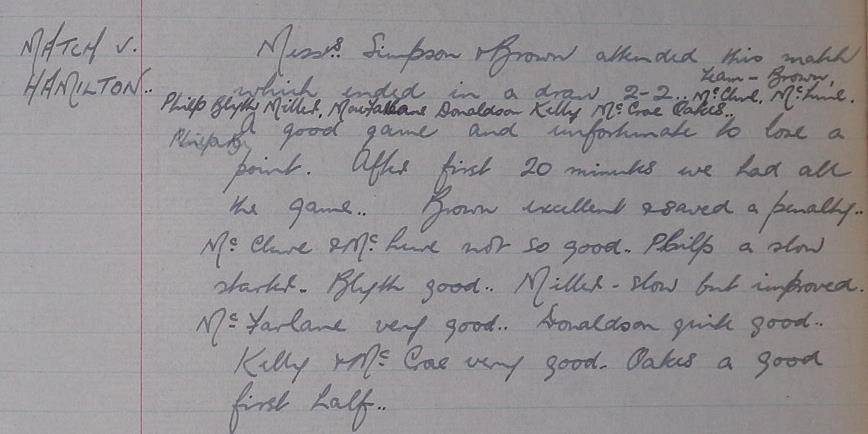 MATCH V.
HAMILTON..
Messrs. Simpson & Brown attended this match
which ended in a draw 2-2.. Team - Brown, McClure, McLure.
Philp Blyth Miller, MacFarlane Donaldson Kelly McCrae Oakes..
A good game and unfortunate to lose a
point. After first 20 minutes we had all
the game.. Brown excellent & saved a penalty..
McClure & McLure not so good.. Philp a slow
starter.. Blyth good.. Miller - slow but improved.
McFarlane very good.. Donaldson quite good..
Kelly & McCrae very good. Oakes a good
first half..